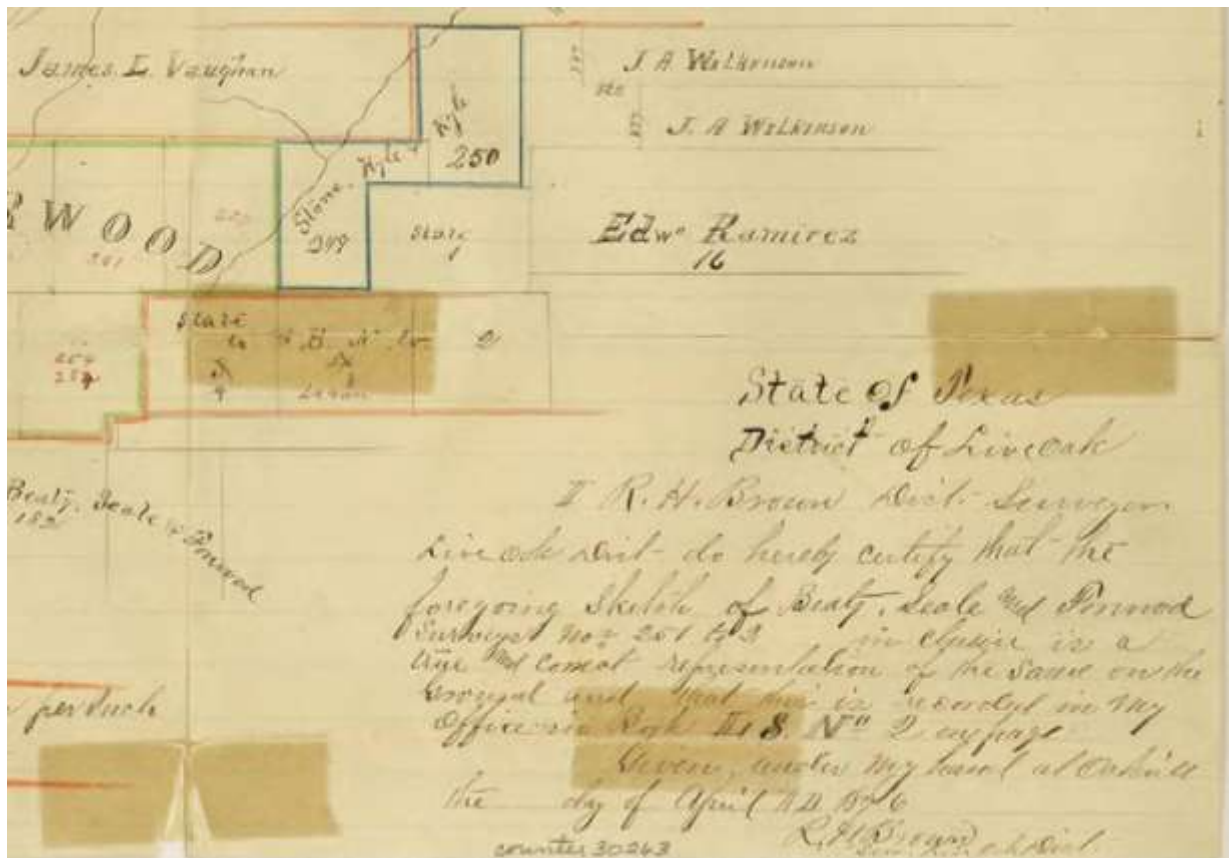 James. E. Vaughan
J. A Wilkinson
J. A Wilkinson
250
Stone, Kyle & Kyle
249
RWOOD
Edwo Ramirez
16
State
2
Beaty, Seale & Forwood
State of Texas
District of Live Oak
I R. H. Brown Dist. Surveyor
Live Oak Dist do hereby certify that the
foregoing Sketch of Beaty, Seale and Forwood
Surveys Nos 251 to in is a
true and correct representation of the same on the
ground and that is recorded in my
Office in Book S. No 2 page
Given, under my hand at Oakville
the day of April A.D. 1876
R. H. Brown
Dist.
per Inch
counter 30263